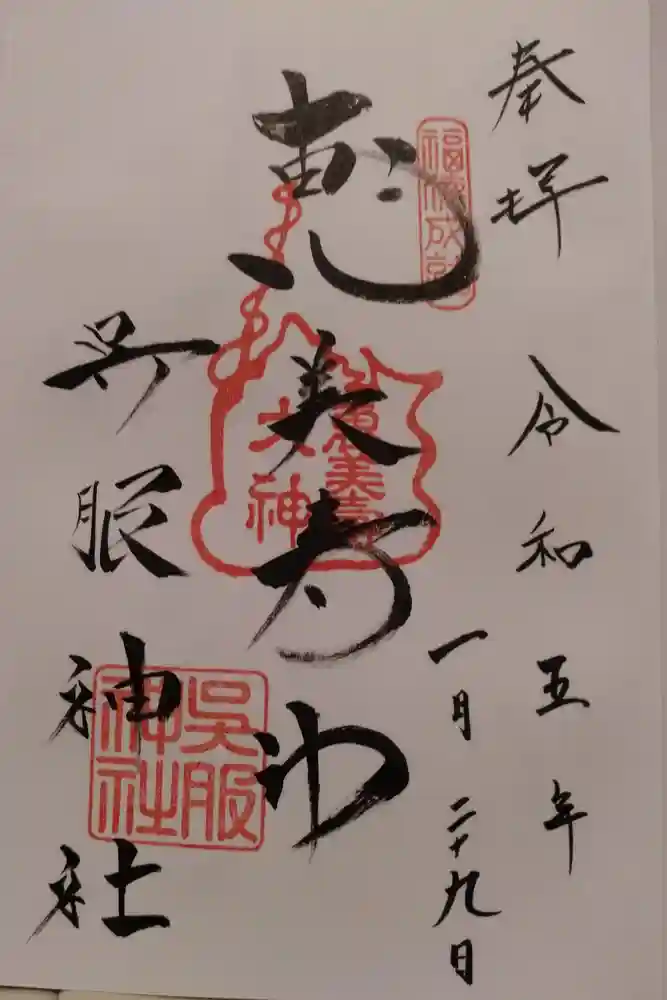 奉拝
令和五年
一月二十九日
福徳成就
恵美寿神
恵美寿
大神
呉服神社
呉服
神社